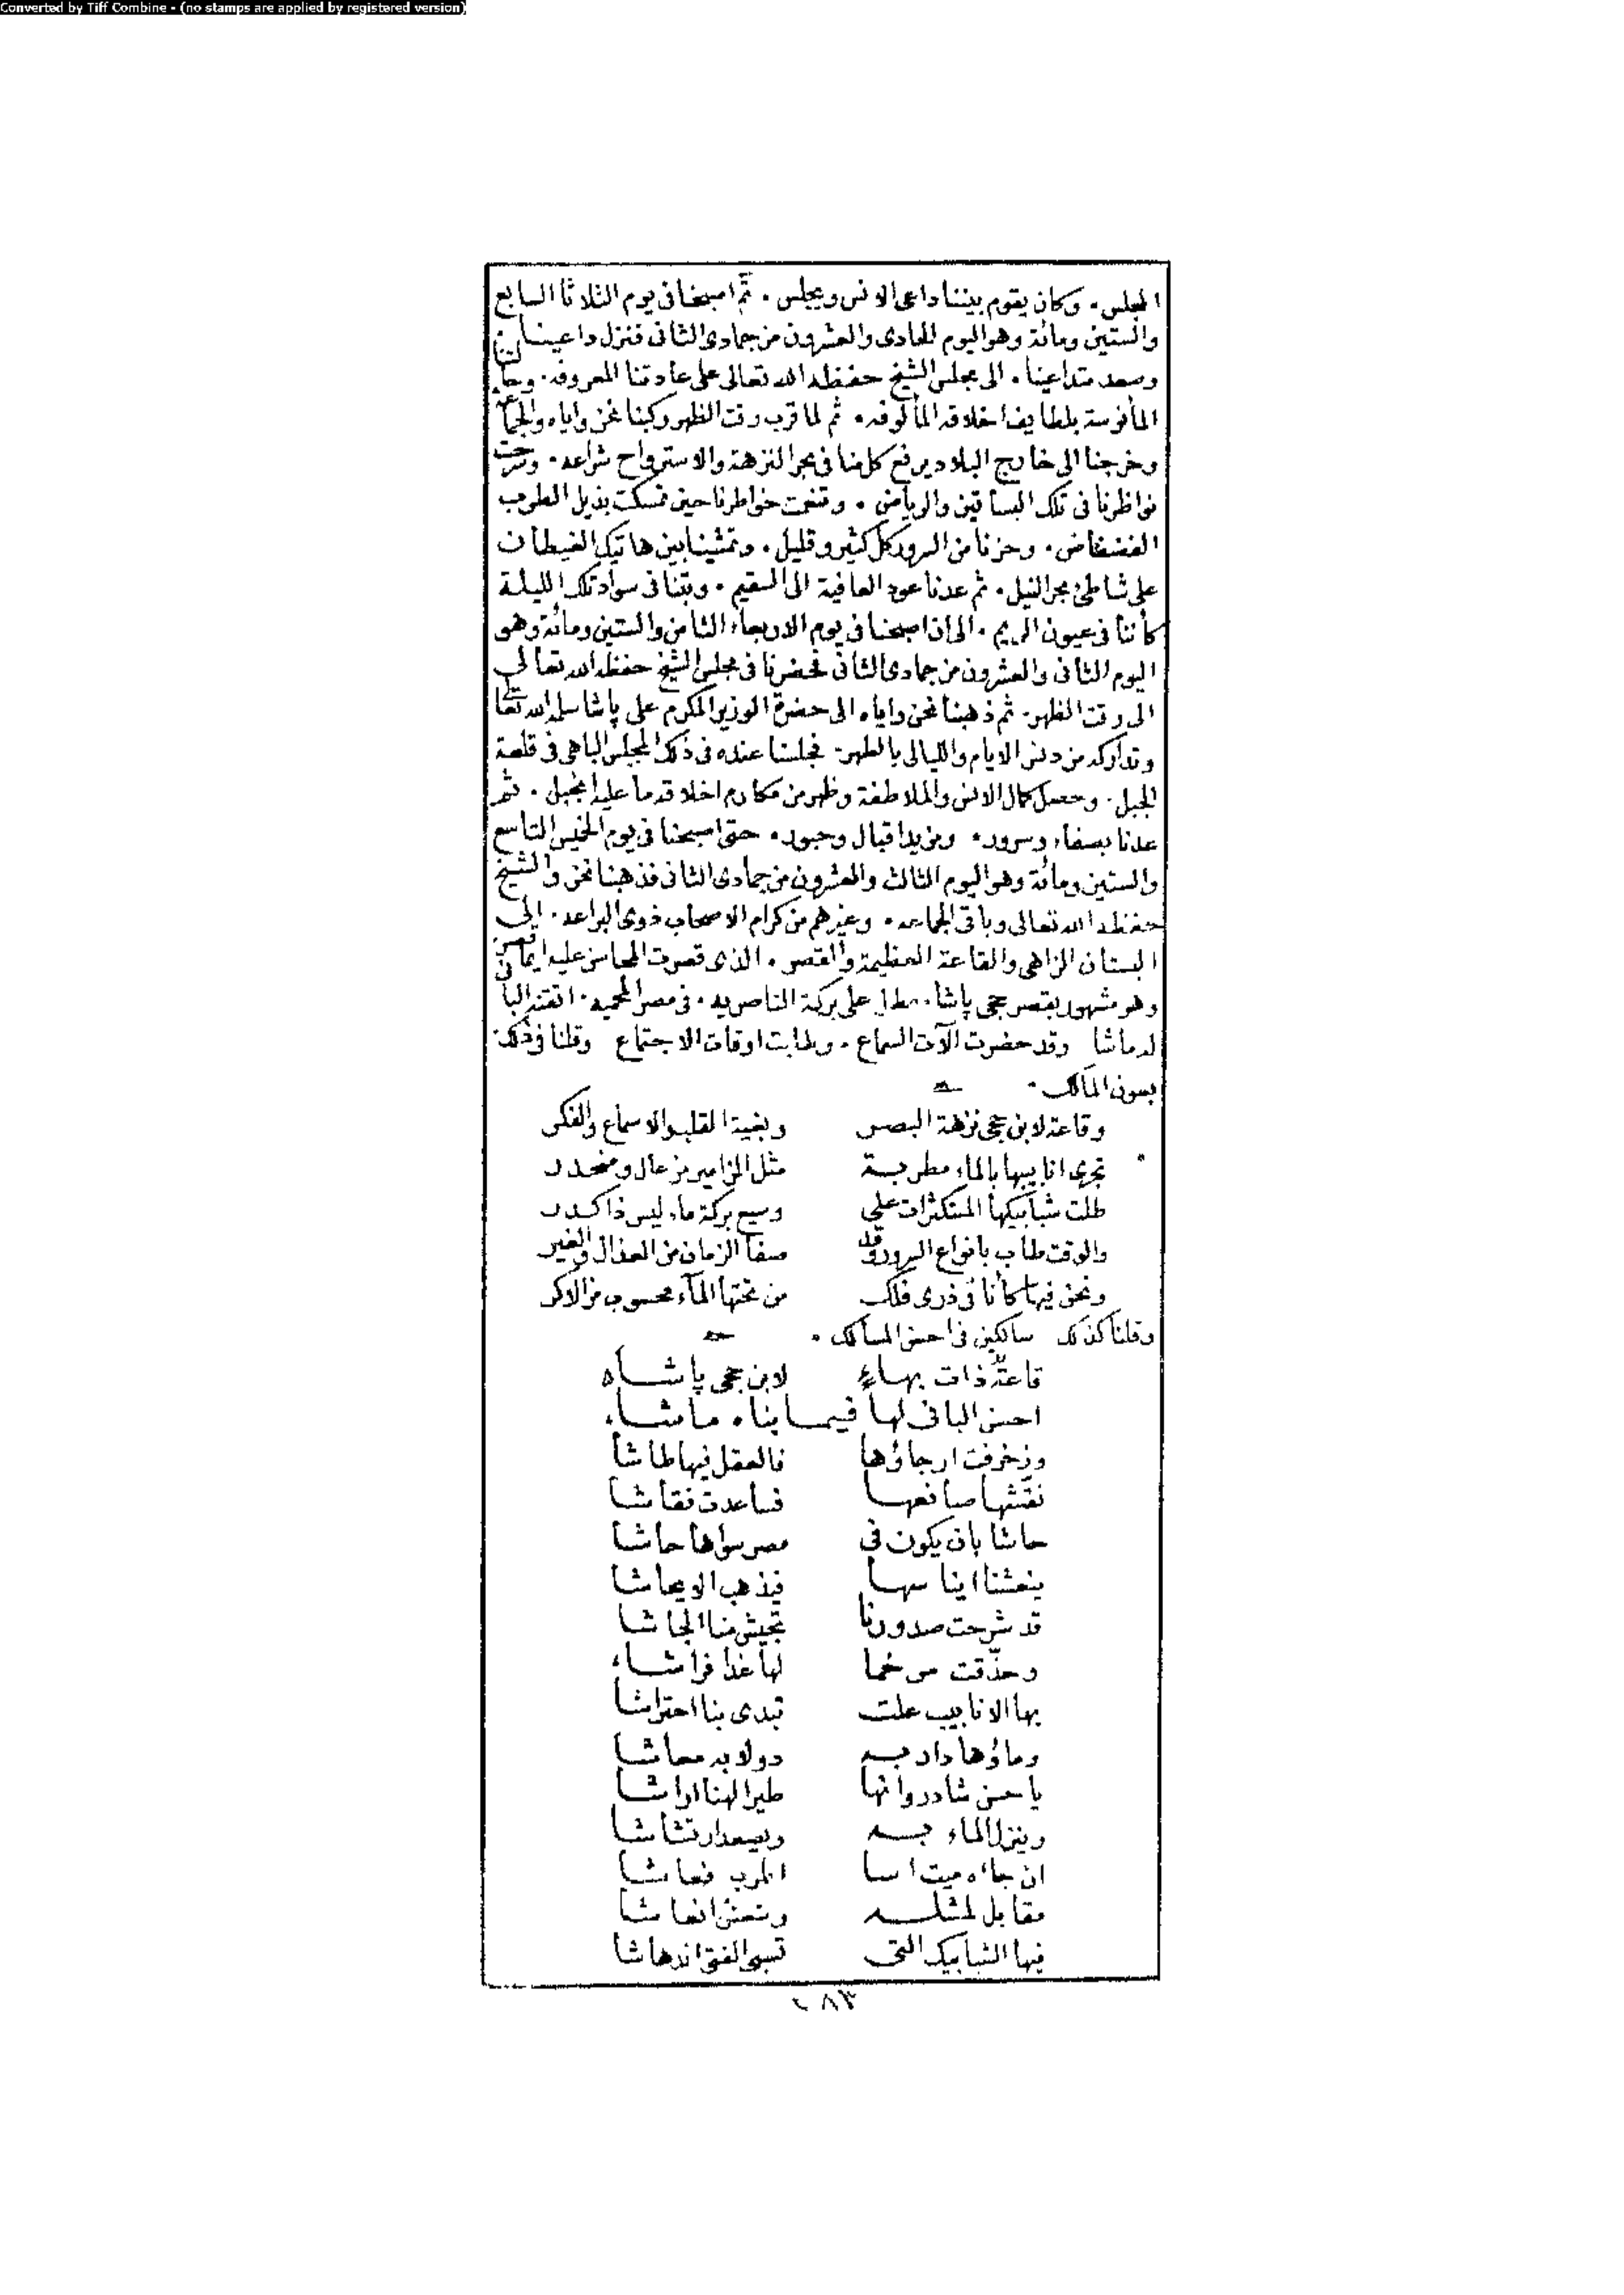 Converted by Tiff Combine - (no stamps are applied by registered version)
المجلس. وكان يقوم بيننا داعى الانس ويجلس. ثم اصبحنا فى يوم الثلاثا السابع
والستين ومائة وهو اليوم الحادى والعشرون من جمادى الثانى فنزل داعينا
وسعد متداعينا. الى مجلس الشيخ حفظه الله تعالى على عادتنا المعروفه. وجالسنا
المأنوسة بلطايف اخلاقه المألوفه. ثم لما قرب وقت الظهر ركبنا نحن واياه والجماعة
وخرجنا الى خارج البلاد يرفع كل منا فى بحر النزهة والاسترواح شراعه. وسرحت
نواظرنا فى تلك البساتين والرياض. وتنعمت خواطرنا حين تمسكت بذيل الطرب
الفضفاض. وحزنا من السرور كل كثير وقليل. وتمشينا بين هاتيك الغيطان
على شاطئ بحر النيل. ثم عدنا عود العافية الى السقيم. وبتنا فى سواد تلك الليلة
كأننا فى عيون الريم. الى ان اصبحنا فى يوم الاربعاء الثامن والستين ومائة وهو
اليوم الثانى والعشرون من جمادى الثانى فحضرنا فى مجلس الشيخ حفظه الله تعالى
الى وقت الظهر. ثم ذهبنا نحن واياه الى حضرة الوزير المكرم على پاشا سلمه الله تعالى
وتداركه من دنس الايام والليالى بالطهر. فجلسنا عنده فى ذلك المجلس الباهى فى قلعة
الجبل. وحصل كمال الانس والملاطفة وظهر من مكارم اخلاقه ما عليه انجبل. ثم
عدنا بصفاء وسرور. ومزيد اقبال وحبور. حتى اصبحنا فى يوم الخميس التاسع
والستين ومائة وهو اليوم الثالث والعشرون من جمادى الثانى فذهبنا نحن والشيخ
حفظه الله تعالى وباقى الجماعه. وغيرهم من كرام الاصحاب ذوى البراعه. الى
البستان الزاهى والقاعة العظيمة والقصر. الذى قصرت المحاسن عليه ايما قصر
وهو مشهور بقصر حجى پاشا. مطل على بركة الناصريه. فى مصر المحميه. اتقنه البانى
له ماشا وقد حضرت آلآت السماع. وطابت اوقات الاجتماع وقلنا فى ذلك
بعون المالك.
وقاعة لابن حجى نزهة البصر وبغية القلب والاسماع والفكر
تجرى انابيبها بالماء مطربة مثل المزامير من عال ومنحدر
طلت شبابيكها المستكثرات على وسيع بركة ماء ليس ذا كدر
والوقت طاب بانواع السرور وقد صفا الزمان من العذال والغير
ونحن فيها كأنا فى ذرى فلك من تحتها المآء محسوب من الاكر
وقلنا كذلك سالكين فى احسن المسالك.
قاعة ذات بهاء لابن حجى پاشاه
احسن البانى لها فيما بناه ماشاء
وزخرفت ارجاؤها فالعقل فيها طاشا
نقشها صانعها فساعدت نقاشا
حاشا بان يكون فى مصر سواها حاشا
ينعشنا ايناسها فيذهب الايحاشا
قد شرحت صدورنا تجيش منا الجاشا
وحذقت مرخما لها غدا فراشاء
بها الانابيب علت تبدى بنا احتراشا
وماؤها دار به دولابه معاشا
يا حسن شادروانها طير الهنا اراشا
وينزل الماء به ويصعد ارتشاشا
ان جاءه ميت اسا اطرب فعاشا
مقابل لمثله وينعش انعاشا
فيها الشبابيك التى تسبى الفتى اندهاشا
٢٨٣